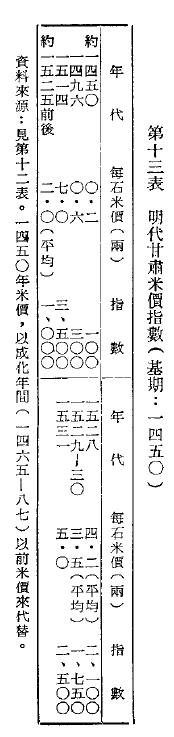 第十三表　明代甘肅米價指數(基期：一四五〇)
年代　每石米價(兩)　指數　年代　每石米價(兩)　指數
約一四五〇　〇・二　一〇〇　一五二八　四・二(平均)　二、一〇〇
一四九六　〇・六　三〇〇　一五二九—三〇　三・五(平均)　一、七五〇
一五一四　七・〇　三、五〇〇　一五三一　五・〇　二、五〇〇
約一五二五前後　二・〇(平均)　一、〇〇〇
資料來源：見第十二表。一四五〇年米價，以成化年間(一四六五—八七)以前米價來代替。